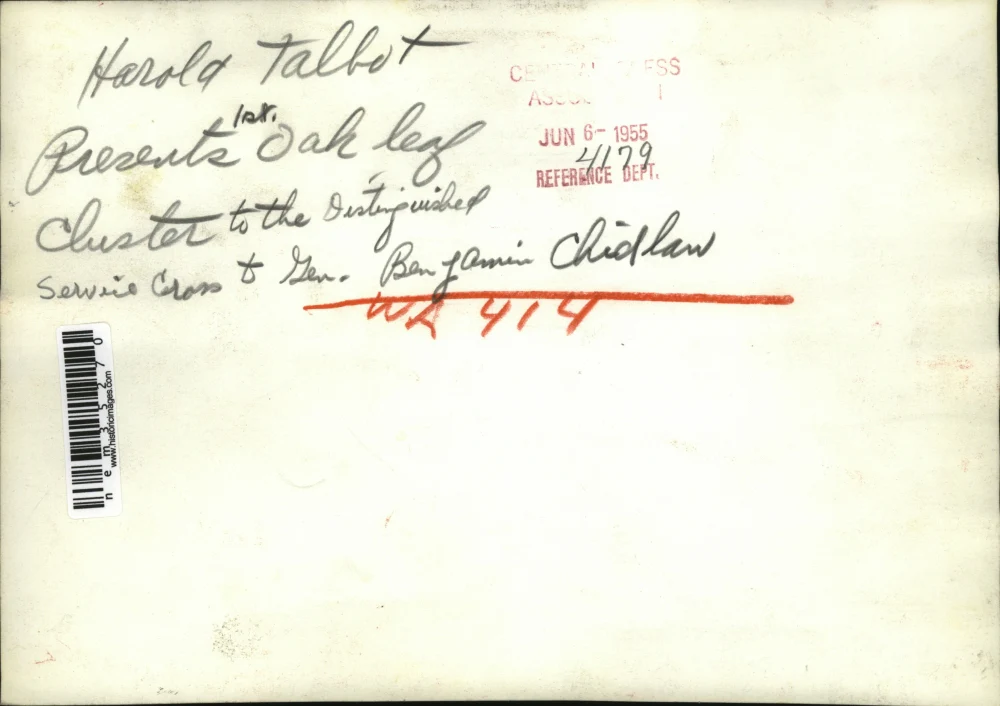 Harold Talbot
Presents 1st. Oak leaf
Cluster to the Distinguished
Service Cross to Gen. Benjamin Chidlaw
WA 414
CENTRAL PRESS
JUN 6- 1955
4179
REFERENCE DEPT.
nem35270
www.historicimages.com